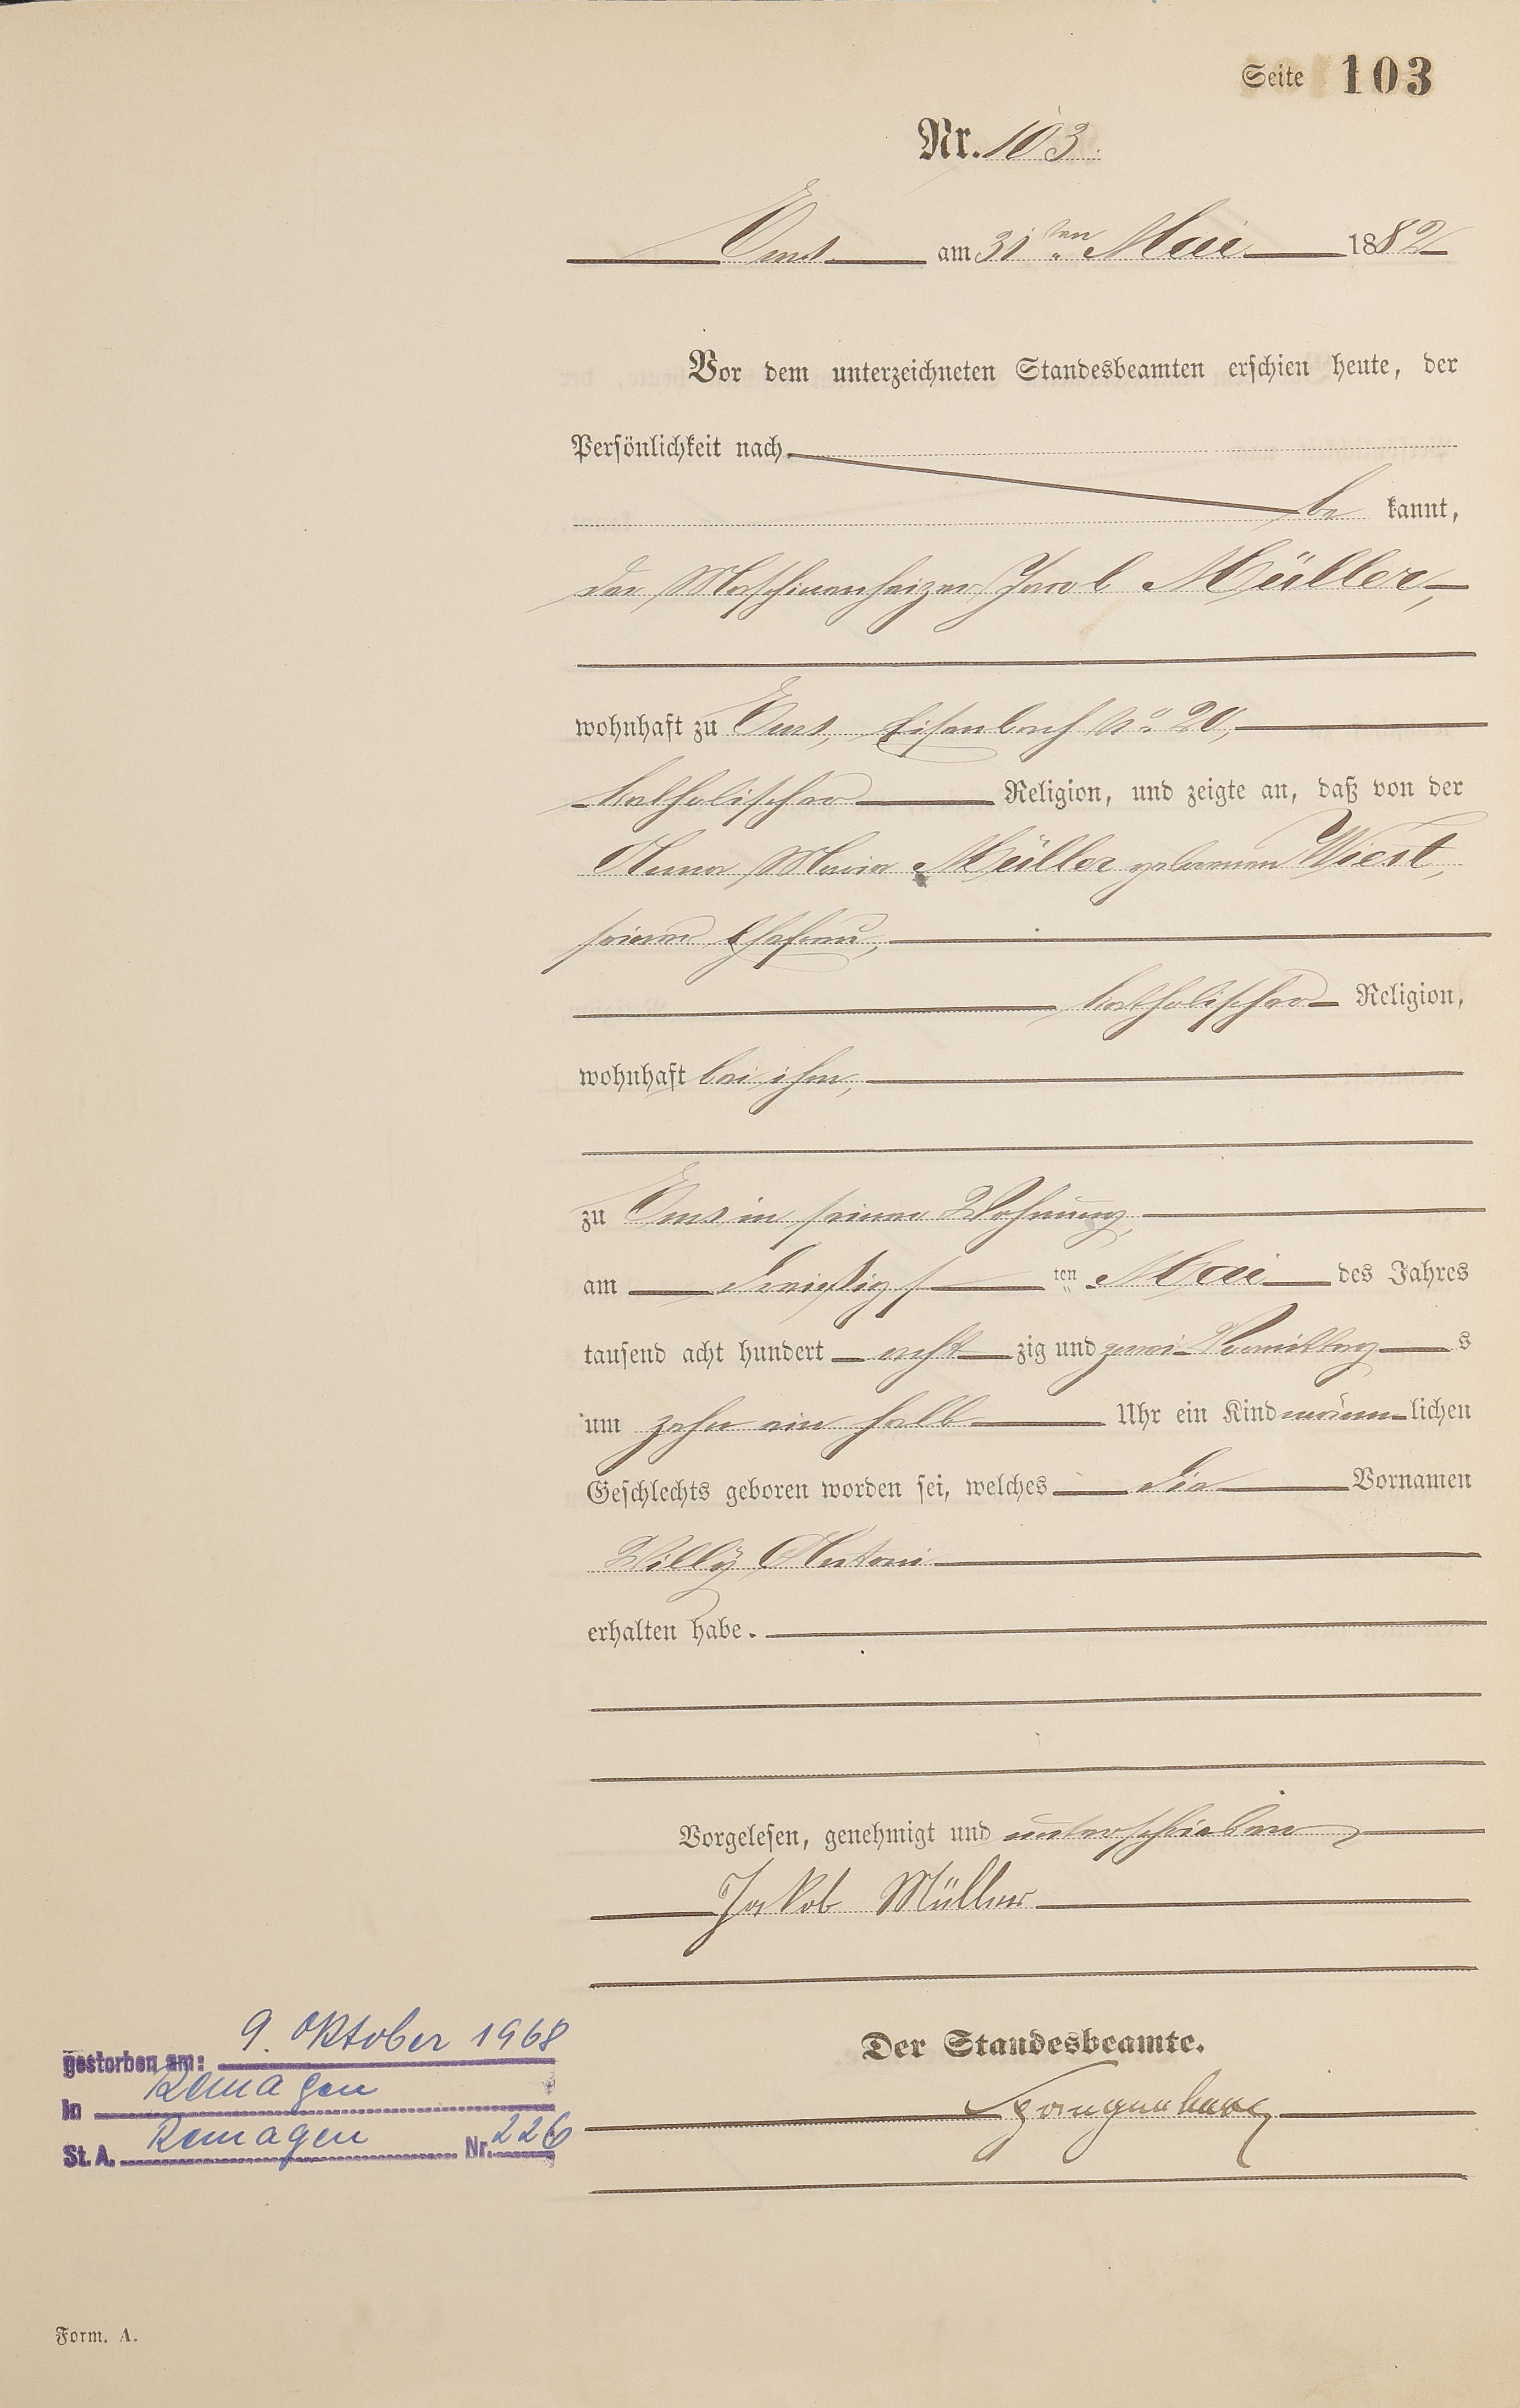 Seite 103
Nr. 103.
Ems am 31ten Mai 1882
Vor dem unterzeichneten Standesbeamten erschien heute, der
Persönlichkeit nach
be kannt,
der Maschinenheizer Jacob Müller,
wohnhaft zu Ems, Eisenbach No. 20,
katholischer Religion, und zeigte an, daß von der
Anna Maria Müller geborenen Wiest,
seiner Ehefrau,
katholischer Religion,
wohnhaft bei ihm,
zu Ems in seiner Wohnung,
am dreißigs ten Mai des Jahres
tausend acht hundert acht zig und zwei Vormittag s
um zehn ein halb Uhr ein Kind männ lichen
Geschlechts geboren worden sei, welches die Vornamen
Willÿ Antoni
erhalten habe.
Vorgelesen, genehmigt und unterschrieben
Jakob Müller
Der Standesbeamte.
gestorben am: 9. Oktober 1968
in Remagen
St. A. Remagen Nr. 226
Form. A.